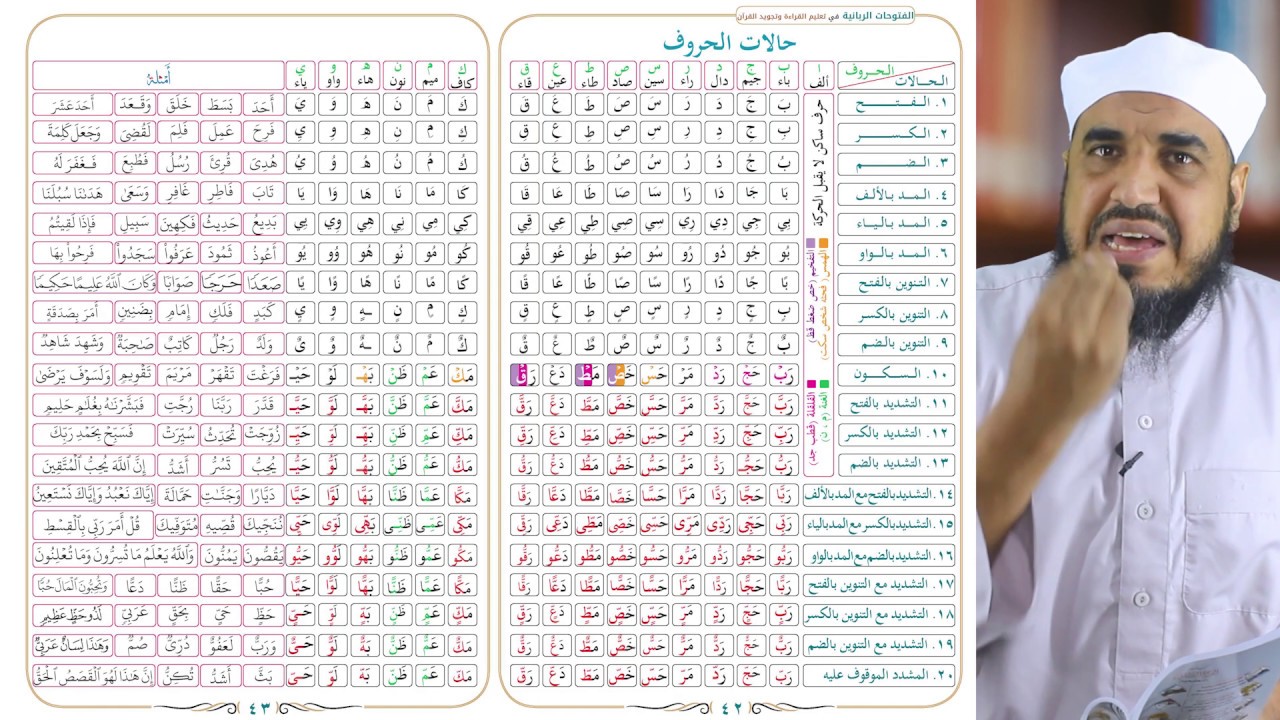 الفتوحات الربانية في تعليم القراءة وتجويد القرآن
حالات الحروف
الحروف ا ب ج د ر س ص ط ع ق
الحالات ألف باء جيم دال راء سين صاد طاء عين قاء
ك م ن ه و ي
كاف ميم نون هاء واو ياء أمثلة
حرف ساكن لا يقبل الحركة
١. الفتح بَ جَ دَ رَ سَ صَ طَ عَ قَ كَ مَ نَ هَ وَ يَ أَحَدَ بَسَطَ خَلَقَ وَقَعَدَ أَحَدَ عَشَرَ
٢. الكسر بِ جِ دِ رِ سِ صِ طِ عِ قِ كِ مِ نِ هِ وِ يِ فَرِحَ عَمِلَ فَلِمَ لَقُضِىَ وَجَعَلَ كَلِمَةَ
٣. الضم بُ جُ دُ رُ سُ صُ طُ عُ قُ كُ مُ نُ هُ وُ يُ هُدِىَ قُرِئَ رُسُلُ فَقُطِعَ فَغَفَرَ لَهُ
٤. المد بالألف بَا جَا دَا رَا سَا صَا طَا عَا قَا كَا مَا نَا هَا وَا يَا تَابَ فَاطِرِ غَافِرِ وَسَعَىٰ هَدَىٰنَا سُبُلَنَا
٥. المد بالياء بِي جِي دِي رِي سِي صِي طِي عِي قِي كِي مِي نِي هِي وِي يِي بَدِيعُ حَدِيثُ فَكِهِينَ سَبِيلِ فَإِذَا لَقِيتُمُ
٦. المد بالواو بُو جُو دُو رُو سُو صُو طُو عُو قُو كُو مُو نُو هُو وُو يُو أَعُوذُ ثَمُودَ عَرَفُوا۟ سَجَدُوا۟ فَرِحُوا۟ بِهَا
٧. التنوين بالفتح بًا جًا دًا رًا سًا صًا طًا عًا قًا كًا مًا نًا هًا وًا يًا صَعَدًا حَرَجًا صَوَابًا وَكَانَ ٱللَّهُ عَلِيمًا حَكِيمًا
٨. التنوين بالكسر بٍ جٍ دٍ رٍ سٍ صٍ طٍ عٍ قٍ كٍ مٍ نٍ هٍ وٍ يٍ كَبَدٍ فَلَكٍ إِمَامٍ بِضَنِينٍ أَمَرَ بِصَدَقَةٍ
٩. التنوين بالضم بٌ جٌ دٌ رٌ سٌ صٌ طٌ عٌ قٌ كٌ مٌ نٌ هٌ وٌ يٌ وَلَدٌ رَجُلٌ كَاتِبٌ صَٰحِبَةٌ وَشَهِدَ شَاهِدٌ
١٠. السكون رَبْ حَجْ رَدْ مَرْ حَسْ خَصْ مَطْ دَعْ رَقْ مَكْ عَمْ ظَنْ بَهْ لَوْ حَيْ فَرَغْتَ تَقْهَرْ مَرْيَمَ تَقْوِيمٍ وَلَسَوْفَ يَرْضَىٰ
١١. التشديد بالفتح رَبَّ حَجَّ رَدَّ مَرَّ حَسَّ خَصَّ مَطَّ دَعَّ رَقَّ مَكَّ عَمَّ ظَنَّ بَهَّ لَوَّ حَيَّ قَدَّرَ رَبَّنَا رُجَّتِ فَبَشَّرْنَٰهُ بِغُلَٰمٍ حَلِيمٍ
١٢. التشديد بالكسر رَبِّ حَجِّ رَدِّ مَرِّ حَسِّ خَصِّ مَطِّ دَعِّ رَقِّ مَكِّ عَمِّ ظَنِّ بَهِّ لَوِّ حَيِّ زُوِّجَتْ تُحَدِّثُ سُيِّرَتْ فَسَبِّحْ بِحَمْدِ رَبِّكَ
١٣. التشديد بالضم رَبُّ حَجُّ رَدُّ مَرُّ حَسُّ خَصُّ مَطُّ دَعُّ رَقُّ مَكُّ عَمُّ ظَنُّ بَهُّ لَوُّ حَيُّ يُحِبُّ تَسُرُّ أَشَدُّ إِنَّ ٱللَّهَ يُحِبُّ ٱلْمُتَّقِينَ
١٤. التشديد بالفتح مع المد بالألف رَبَّا حَجَّا رَدَّا مَرَّا حَسَّا خَصَّا مَطَّا دَعَّا رَقَّا مَكَّا عَمَّا ظَنَّا بَهَّا لَوَّا حَيَّا دَيَّارًا وَجَنَّٰتٍ حَمَّالَةَ إِيَّاكَ نَعْبُدُ وَإِيَّاكَ نَسْتَعِينُ
١٥. التشديد بالكسر مع المد بالياء رَبِّي حَجِّي رَدِّي مَرِّي حَسِّي خَصِّي مَطِّي دَعِّي رَقِّي مَكِّي عَمِّي ظَنِّي بَهِّي لَوِّي حَيِّي نُنَجِّيكَ قُصِّيهِ مُتَوَفِّيكَ قُلْ أَمَرَ رَبِّى بِٱلْقِسْطِ
١٦. التشديد بالضم مع المد بالواو رَبُّو حَجُّو رَدُّو مَرُّو حَسُّو خَصُّو مَطُّو دَعُّو رَقُّو مَكُّو عَمُّو ظَنُّو بَهُّو لَوُّو حَيُّو يَقُصُّونَ يَمُنُّونَ وَٱللَّهُ يَعْلَمُ مَا تُسِرُّونَ وَمَا تُعْلِنُونَ
١٧. التشديد مع التنوين بالفتح رَبًّا حَجًّا رَدًّا مَرًّا حَسًّا خَصًّا مَطًّا دَعًّا رَقًّا مَكًّا عَمًّا ظَنًّا بَهًّا لَوًّا حَيًّا حُبًّا حَقًّا ظَنًّا دَعًّا وَتُحِبُّونَ ٱلْمَالَ حُبًّا
١٨. التشديد مع التنوين بالكسر رَبٍّ حَجٍّ رَدٍّ مَرٍّ حَسٍّ خَصٍّ مَطٍّ دَعٍّ رَقٍّ مَكٍّ عَمٍّ ظَنٍّ بَهٍّ لَوٍّ حَيٍّ حَظٍّ حَيٍّ بِحَقٍّ عَرَبِيٍّ لَذُو حَظٍّ عَظِيمٍ
١٩. التشديد مع التنوين بالضم رَبٌّ حَجٌّ رَدٌّ مَرٌّ حَسٌّ خَصٌّ مَطٌّ دَعٌّ رَقٌّ مَكٌّ عَمٌّ ظَنٌّ بَهٌّ لَوٌّ حَيٌّ وَرَبٌّ لَعَفُوٌّ دُرِّيٌّ صُمٌّ وَهَٰذَا لِسَانٌ عَرَبِىٌّ
٢٠. المشدد الموقوف عليه رَبّ حَجّ رَدّ مَرّ حَسّ خَصّ مَطّ دَعّ رَقّ مَكّ عَمّ ظَنّ بَهّ لَوّ حَيّ بَثَّ أَشَدُّ تُكِنُّ إِنَّ هَٰذَا لَهُوَ ٱلْقَصَصُ ٱلْحَقُّ
الهمس (فحثه شخص سكت)
التفخيم (خص ضغط قظ)
الغنة (م ، ن)
القلقلة (قطب جد)
٤٢
٤٣